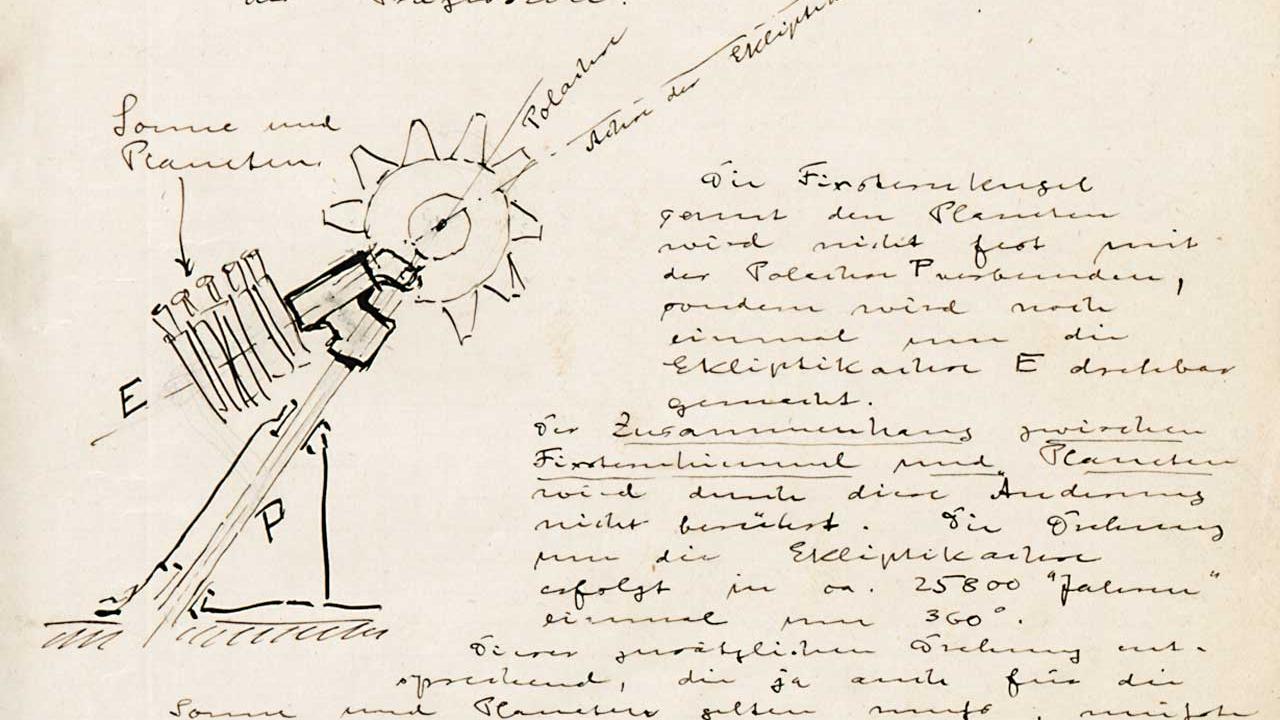 der Präzession.
Polachse
Achse der Ekliptik
Sonne und
Planeten
Die Fixsternkugel
samt den Planeten
wird nicht fest mit
der Polachse P verbunden,
sondern wird noch
einmal um die
Ekliptikachse E drehbar
gemacht.
E
Der Zusammenhang zwischen
Fixsternhimmel und Planeten
wird durch diese Änderung
nicht berührt. Die Drehung
P
um die Ekliptikachse
erfolgt in ca. 25800 "Jahren"
einmal um 360°.
Dieser zusätzlichen Drehung ent-
sprechend, die ja auch für die
Sonne und Planeten gelten muß, müßte